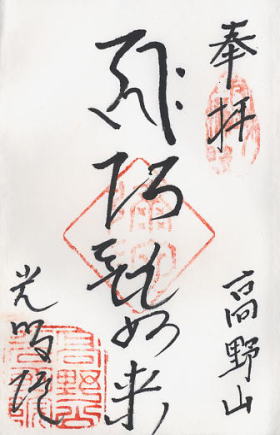 奉拝
高野山
ह्रीः 阿弥陀如来
光明院